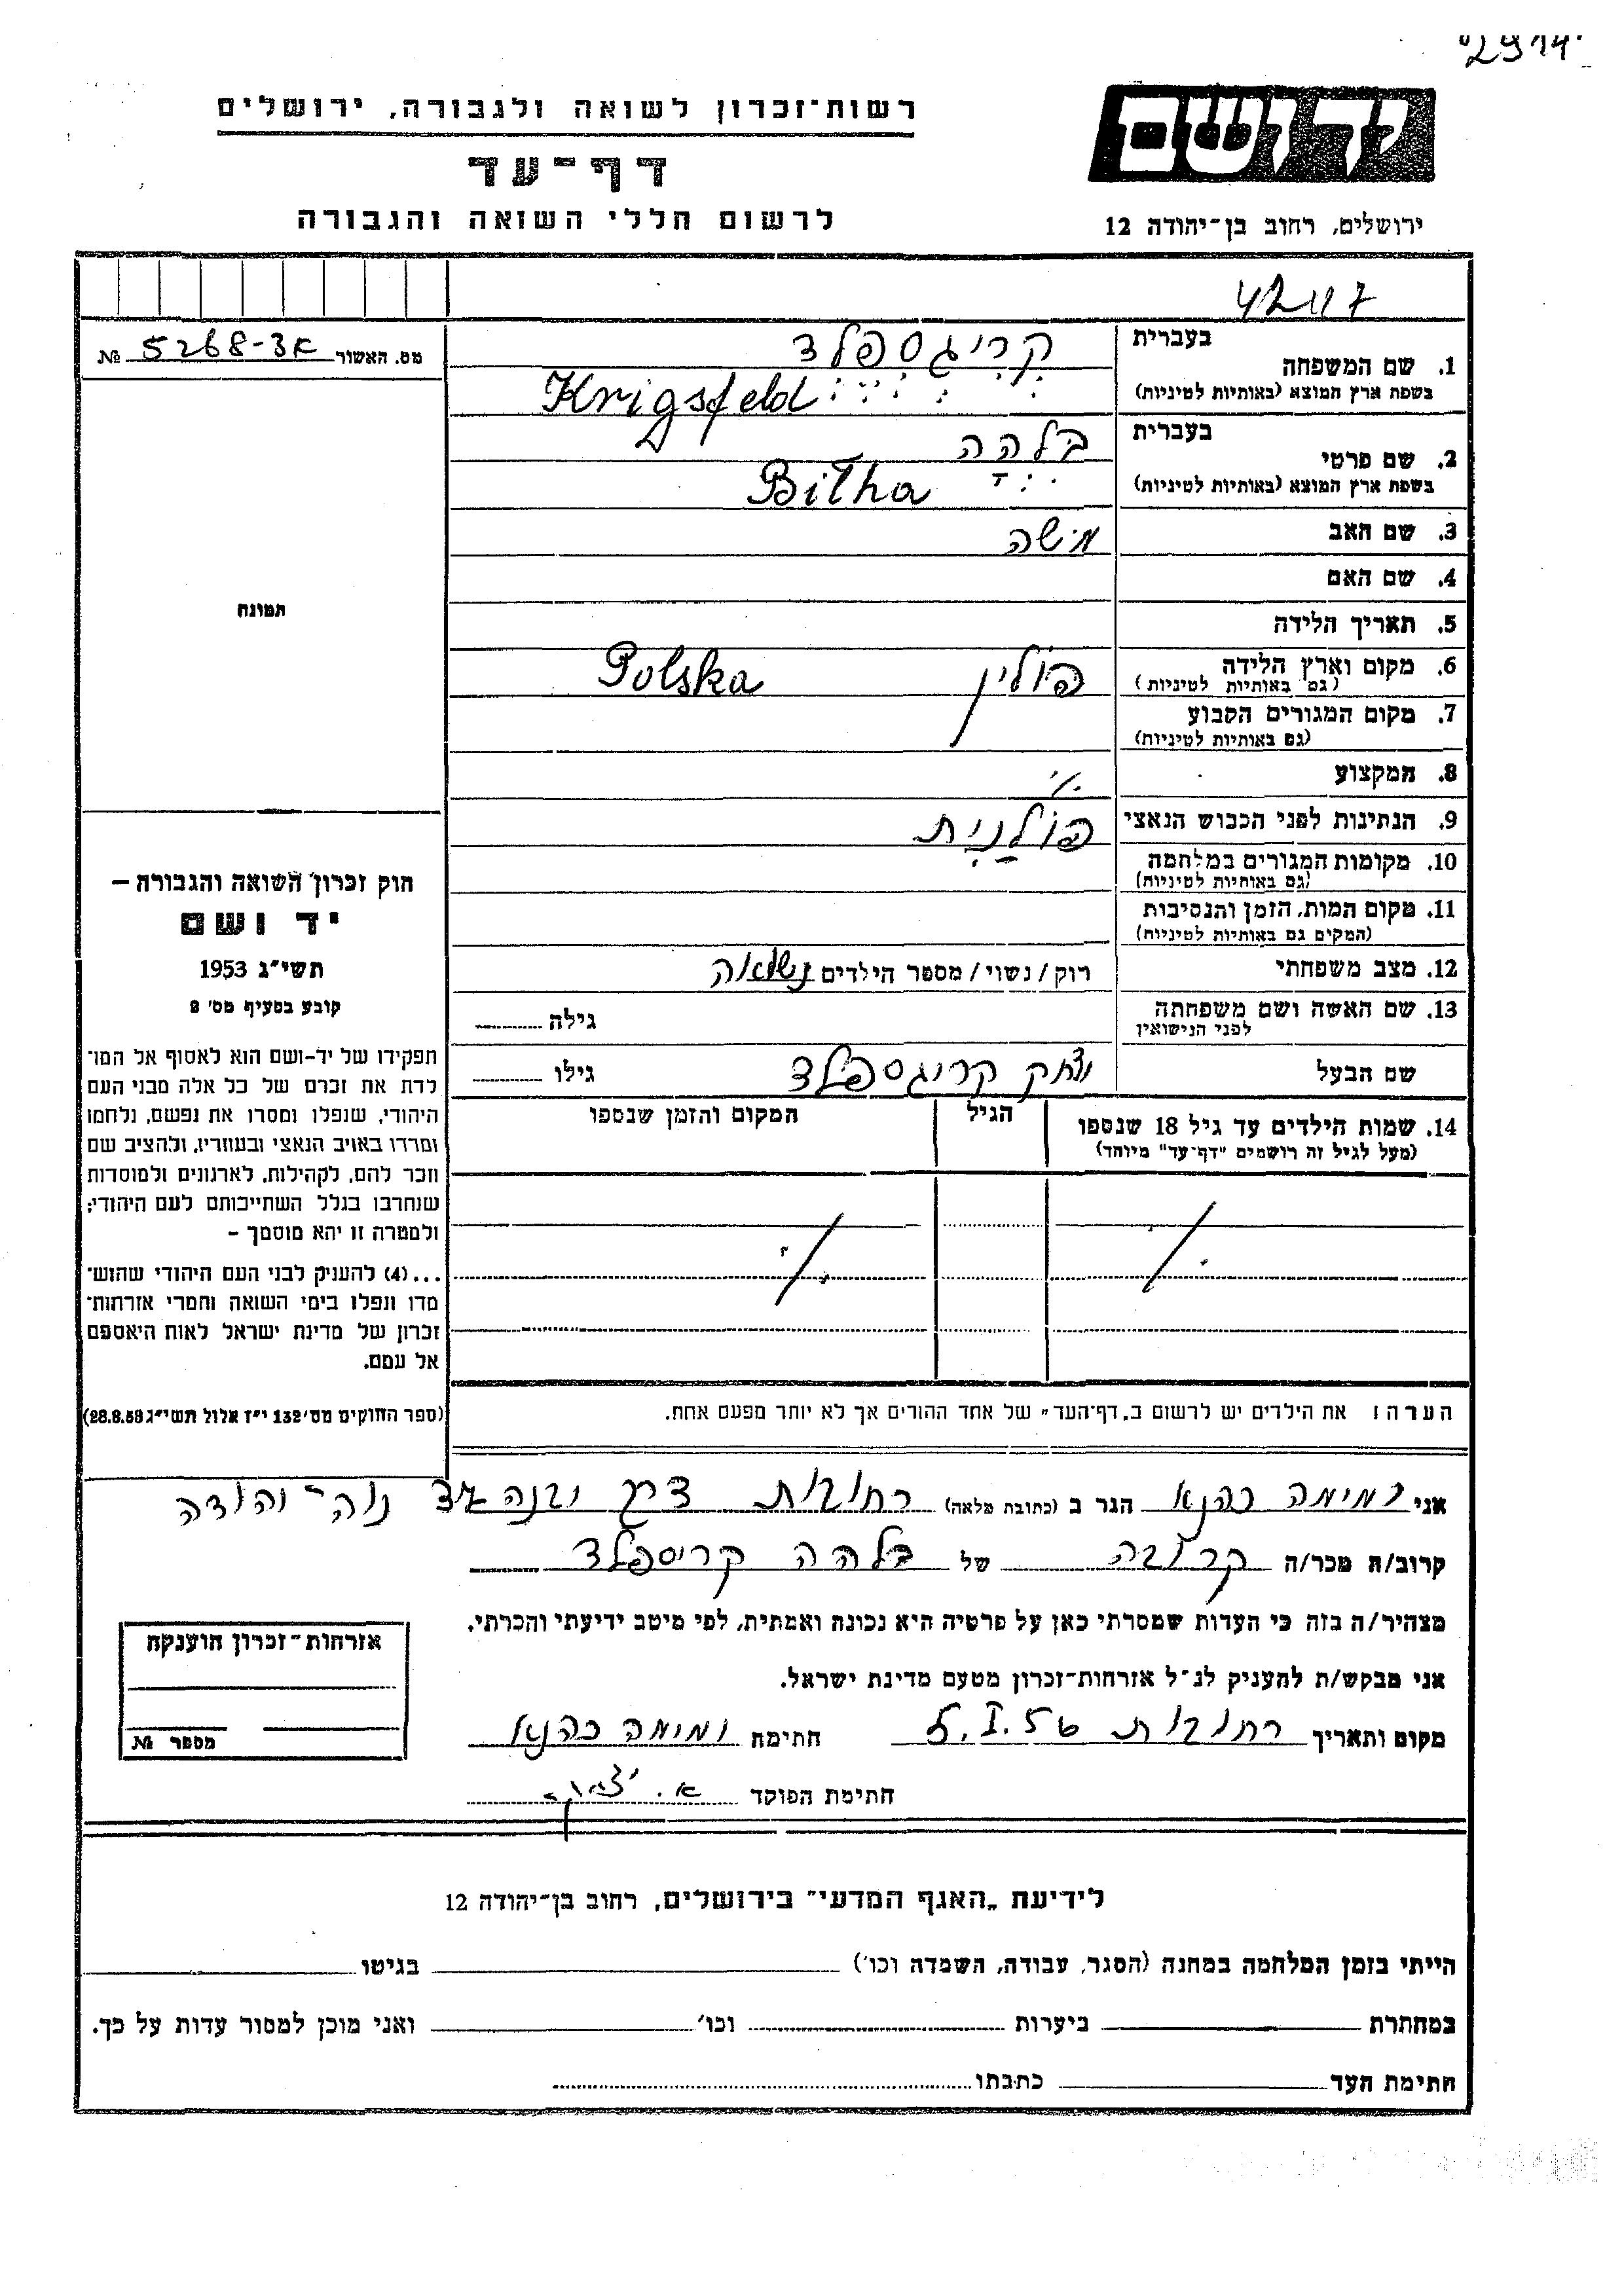 2914
רשות-זכרון לשואה ולגבורה, ירושלים
דף-עד
לרשום חללי השואה והגבורה
יד ושם
ירושלים, רחוב בן-יהודה 12
מס. האשור 5268-3א №
תמונה
1. שם המשפחה בעברית קריגספלד
בשפת ארץ המוצא (באותיות לטיניות) Krigsfeld
2. שם פרטי בעברית בלהה
בשפת ארץ המוצא (באותיות לטיניות) Bilha
3. שם האב משה
4. שם האם
5. תאריך הלידה
6. מקום וארץ הלידה פולין Polska
(גם באותיות לטיניות)
7. מקום המגורים הקבוע
(גם באותיות לטיניות)
8. המקצוע
9. הנתינות לפני הכבוש הנאצי פולנית
10. מקומות המגורים במלחמה
(גם באותיות לטיניות)
11. מקום המות, הזמן והנסיבות
(המקום גם באותיות לטיניות)
12. מצב משפחתי רוק/נשוי/מספר הילדים נשואה
13. שם האשה ושם משפחתה גילה
לפני הנישואין
שם הבעל יצחק קריגספלד גילו
14. שמות הילדים עד גיל 18 שנספו הגיל המקום והזמן שנספו
(מעל לגיל זה רושמים "דף-עד" מיוחד)
הערה: את הילדים יש לרשום ב"דף-העד" של אחד ההורים אך לא יותר מפעם אחת.
חוק זכרון השואה והגבורה –
יד ושם
תשי"ג 1953
קובע בסעיף מס' 2
תפקידו של יד-ושם הוא לאסוף אל המו־
לדת את זכרם של כל אלה מבני העם
היהודי, שנפלו ומסרו את נפשם, נלחמו
ומרדו באויב הנאצי ובעוזריו, ולהציב שם
וזכר להם, לקהילות, לארגונים ולמוסדות
שנחרבו בגלל השתייכותם לעם היהודי;
ולמטרה זו יהא מוסמך –
...(4) להעניק לבני העם היהודי שהוש־
מדו ונפלו בימי השואה והמרי אזרחות־
זכרון של מדינת ישראל לאות היאספם
אל עמם.
(ספר החוקים מס' 132 י"ז אלול תשי"ג 28.8.53)
אני ימימה כהנא הגר ב (כתובת מלאה) רחובות דרך יבנה נוה-יהודה
קרוב/ה מכר/ה קרובה של בלהה קריספלד
מצהיר/ה בזה כי העדות שמסרתי כאן על פרטיה היא נכונה ואמתית, לפי מיטב ידיעתי והכרתי.
אני מבקש/ת להעניק לנ"ל אזרחות-זכרון מטעם מדינת ישראל.
מקום ותאריך רחובות 5.I.56 חתימה ימימה כהנא
חתימת הפוקד א.
אזרחות-זכרון הוענקה
מספר №
לידיעת "האגף המדעי" בירושלים, רחוב בן-יהודה 12
הייתי בזמן המלחמה במחנה (הסגר, עבודה, השמדה וכו') בגיטו
במחתרת ביערות וכו' ואני מוכן למסור עדות על כך.
חתימת העד כתבתו